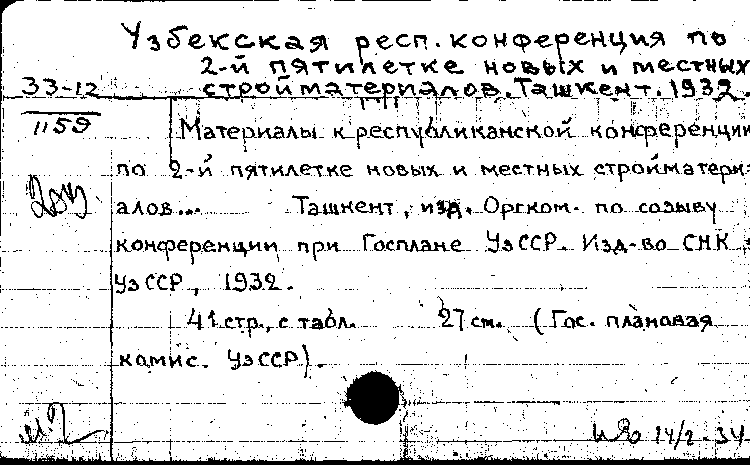 Узбекская респ. конференция по
2-й пятилетке новых и местных
33-12 стройматериалов. Ташкент. 1932.
1159 Материалы к республиканской конференции
по 2-й пятилетке новых и местных стройматери-
алов... Ташкент, изд. Оргком. по созыву
конференции при Госплане УзССР. Изд-во СНК
УзССР, 1932.
41 стр., с табл. 27 см. (Гос. плановая
комис. УзССР).
14/2-34